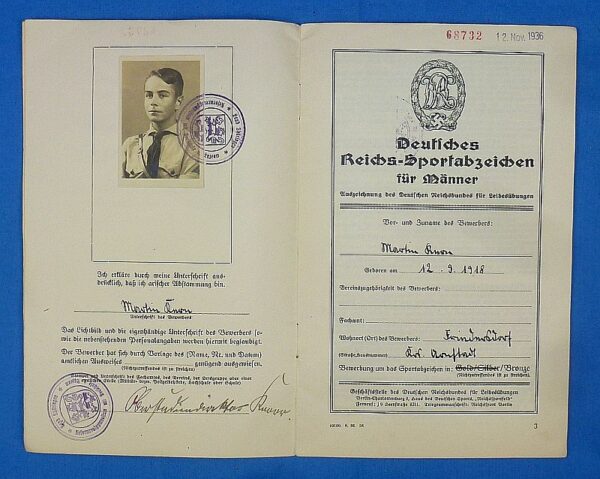 Ich erkläre durch meine Unterschrift aus-
drücklich, daß ich arischer Abstammung bin.
Martin Knorr
Unterschrift des Bewerbers
Das Lichtbild und die eigenhändige Unterschrift des Bewerbers so-
wie die nebenstehenden Personalangaben werden hiermit beglaubigt.
Der Bewerber hat sich durch Vorlage des (Name, Nr. und Datum)
amtlichen Ausweises genügend ausgewiesen.
(Nichtzutreffendes ist zu streichen)
Oberstudiendirektor Knorr
68732
12. Nov. 1936
Deutsches
Reichs-Sportabzeichen
für Männer
Auszeichnung des Deutschen Reichsbundes für Leibesübungen
Vor- und Zuname des Bewerbers:
Martin Knorr
Geboren am 12. 9. 1918
Vereinszugehörigkeit des Bewerbers:
Fachamt:
Wohnort (Ort) des Bewerbers: Friedersdorf
(Straße, Hausnummer) Krs. Arnstadt
Bewerbung um das Sportabzeichen in: Gold/Silber/Bronze
(Nichtzutreffendes ist zu streichen)
Geschäftsstelle des Deutschen Reichsbundes für Leibesübungen
Berlin-Charlottenburg 9, Haus des Deutschen Sports, „Reichssportfeld“
3